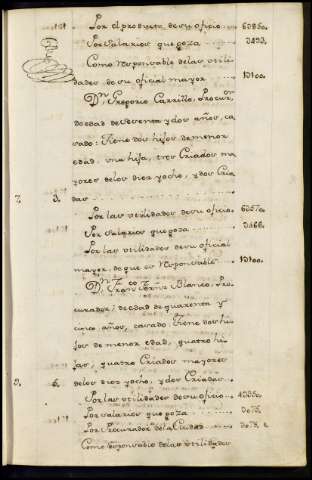 Por el producto de su oficio... 6085o.
Por Salarios que goza...
Como Responsable de las utili
dades de su oficial mayor... 1Dloo.
Dn. Gregorio Carrillo, Procuror.
de edad de setenta y dos años, ca
sado: tiene dos hijos de menor
edad, una hija, tres Criados ma
yores de los diez y ocho, y dos Cria
das...
7. 3.
Por las utilidades de su oficio.
Por Salarios que goza... D466.
Por las utilidades de su oficial
mayor, de que es Responsable 1Dloo.
Dn. Franco. Blanco, Pro
curador; de edad de quarenta y
cinco años, casado. Tiene dos hi
jos de menor edad, quatro hi
jas, quatro Criados mayores
9. 6. de los diez y ocho, y dos Criadas...
Por las utilidades de su oficio...
Por salarios que goza... Do75.
Por Procurador de la Ciudad... Do78.
Como Responsable de las utilidades